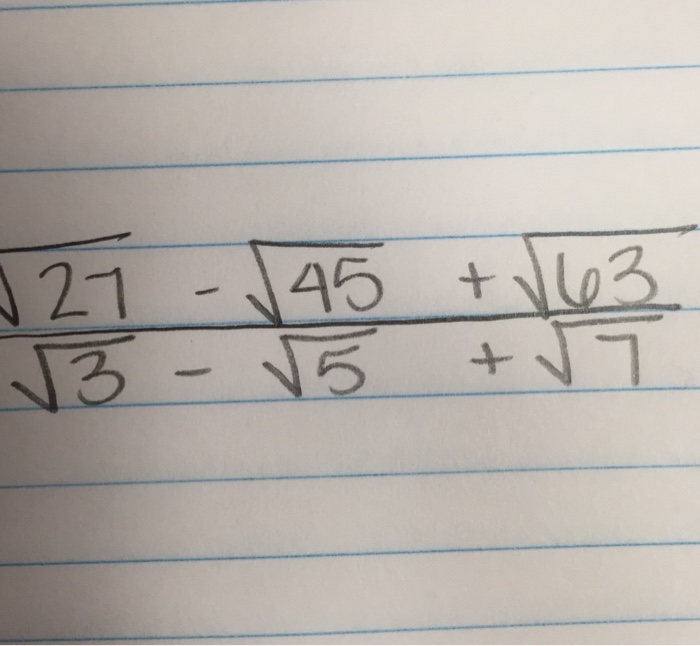 √27 - √45 + √63
√3 - √5 + √7